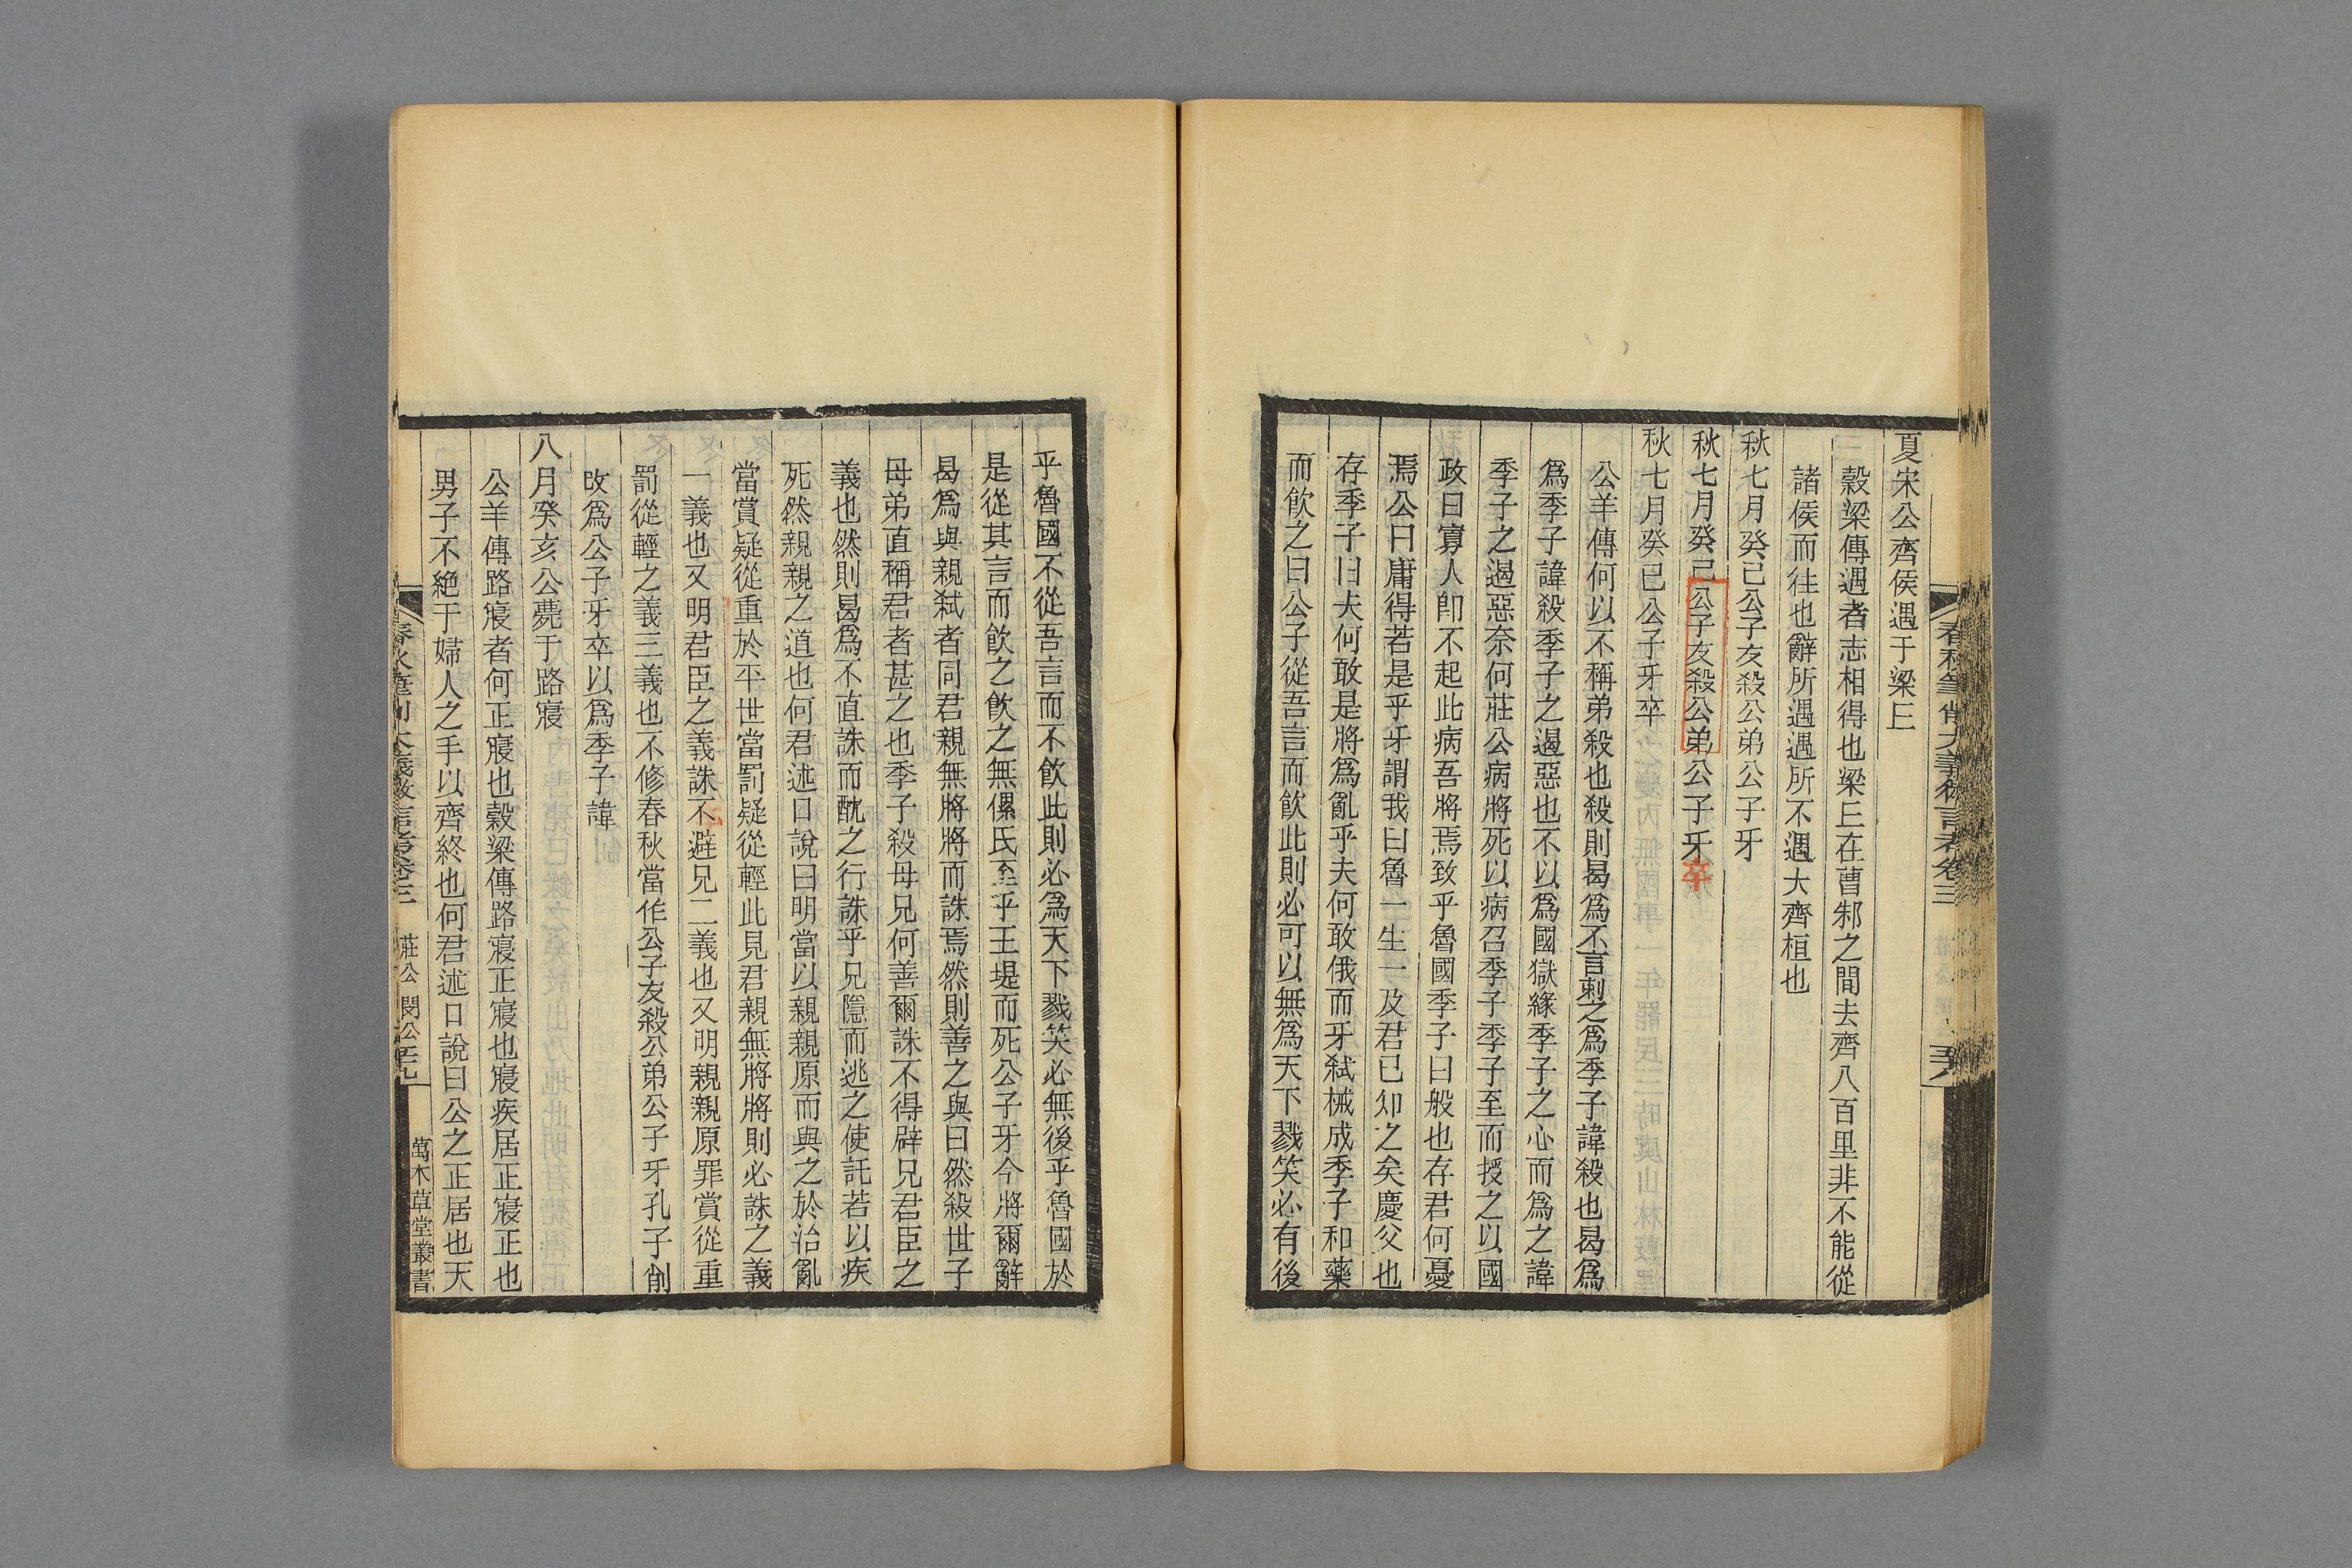 夏宋公齊侯遇于梁㐀
穀梁傳遇者志相得也梁㐀在曹邾之間去齊八百里非不能從
諸侯而往也辭所遇遇所不遇大齊桓也
秋七月癸巳公子友殺公弟公子牙
秋七月癸巳公子友殺公弟公子牙卒
秋七月癸巳公子牙卒
公羊傳何以不稱弟殺也殺則曷爲不言刺之爲季子諱殺也曷爲
爲季子諱殺季子之遏惡也不以爲國獄緣季子之心而爲之諱
季子之遏惡奈何莊公病將死以病召季子季子至而授之以國
政曰寡人卽不起此病吾將焉致乎魯國季子曰般也存君何憂
焉公曰庸得若是乎牙謂我曰魯一生一及君已知之矣慶父也
存季子曰夫何敢是將爲亂乎夫何敢俄而牙弒械成季子和藥
而飲之曰公子從吾言而飲此則必可以無爲天下戮笑必有後
乎魯國不從吾言而不飲此則必爲天下戮笑必無後乎魯國於
是從其言而飲之飲之無傫氏至乎王堤而死公子牙今將爾辭
曷爲與親弒者同君親無將將而誅焉然則善之與曰然殺世子
母弟直稱君者甚之也季子殺母兄何善爾誅不得辟兄君臣之
義也然則曷爲不直誅而酖之行誅乎兄隱而逃之使託若以疾
死然親親之道也何君述口說曰明當以親親原而與之於治亂
當賞疑從重於平世當罰疑從輕此見君親無將將則必誅之義
一義也又明君臣之義誅不避兄二義也又明親親原罪賞從重
罰從輕之義三義也不修春秋當作公子友殺公弟公子牙孔子削
改爲公子牙卒以爲季子諱
八月癸亥公薨于路寢
公羊傳路寢者何正寢也穀梁傳路寢正寢也寢疾居正寢正也
男子不絕于婦人之手以齊終也何君述口說曰公之正居也天
春秋筆削大義微言考卷三 莊公 閔公 萬木草堂叢書